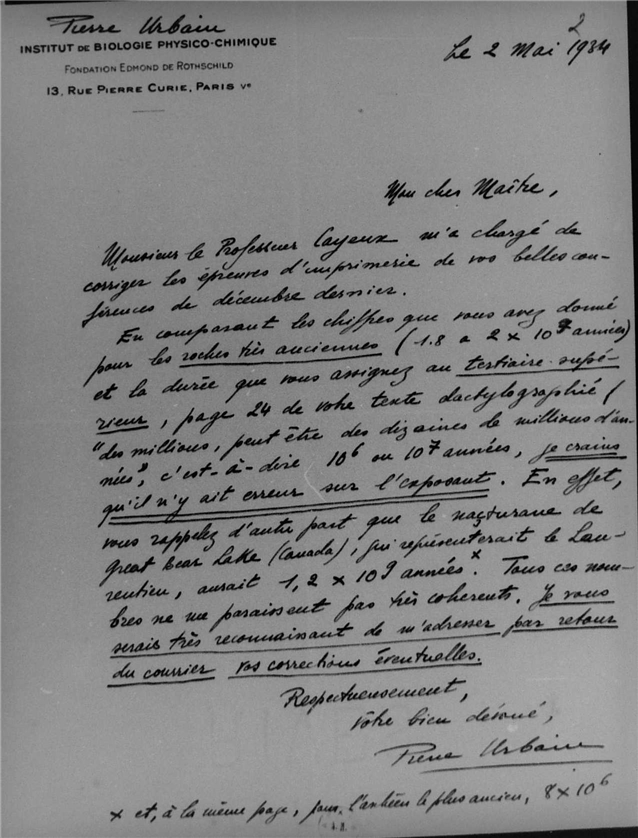 Pierre Urbain
INSTITUT DE BIOLOGIE PHYSICO-CHIMIQUE
FONDATION EDMOND DE ROTHSCHILD
13, RUE PIERRE CURIE, PARIS Vᵉ
2
Le 2 Mai 1934
Mon cher Maître,
Monsieur le Professeur Cayeux m'a chargé de
corriger les épreuves d'imprimerie de vos belles con-
férences de décembre dernier.
En comparant les chiffres que vous avez donné
pour les roches très anciennes (1.8 a 2 x 10⁹ années)
et la durée que vous assignez au tertiaire supé-
rieur, page 24 de votre texte dactylographié (
"des millions, peut être des dizaines de millions d'an-
nées", c'est-à-dire 10⁶ ou 10⁷ années, je crains
qu'il n'y ait erreur sur l'exposant. En effet,
vous rappelez d'autre part que le nasturane de
Great Bear Lake (Canada), qui représenterait le Lau-
rentien, aurait 1,2 x 10⁹ années ˣ. Tous ces nom-
bres ne me paraissent pas très cohérents. Je vous
serais très reconnaissant de m'adresser par retour
du courrier vos corrections éventuelles.
Respectueusement,
Votre bien dévoué,
Pierre Urbain
x et, à la même page, pour le plus ancien, 8 x 10⁶